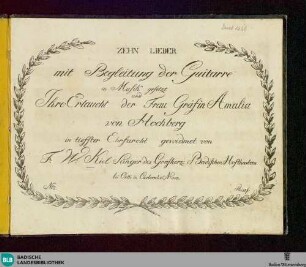 ZEHN LIEDER
mit Begleitung der Guitarre
in Musik gesetzt
und
Ihro Erlaucht der Frau Gräfin Amalia
von Hochberg
in tiefster Ehrfurcht gewidmet von
Sänger des Grosherz. Badischen Hoftheaters
bei
No.
BLB
BADISCHE
LANDESBIBLIOTHEK
Baden-Württemberg